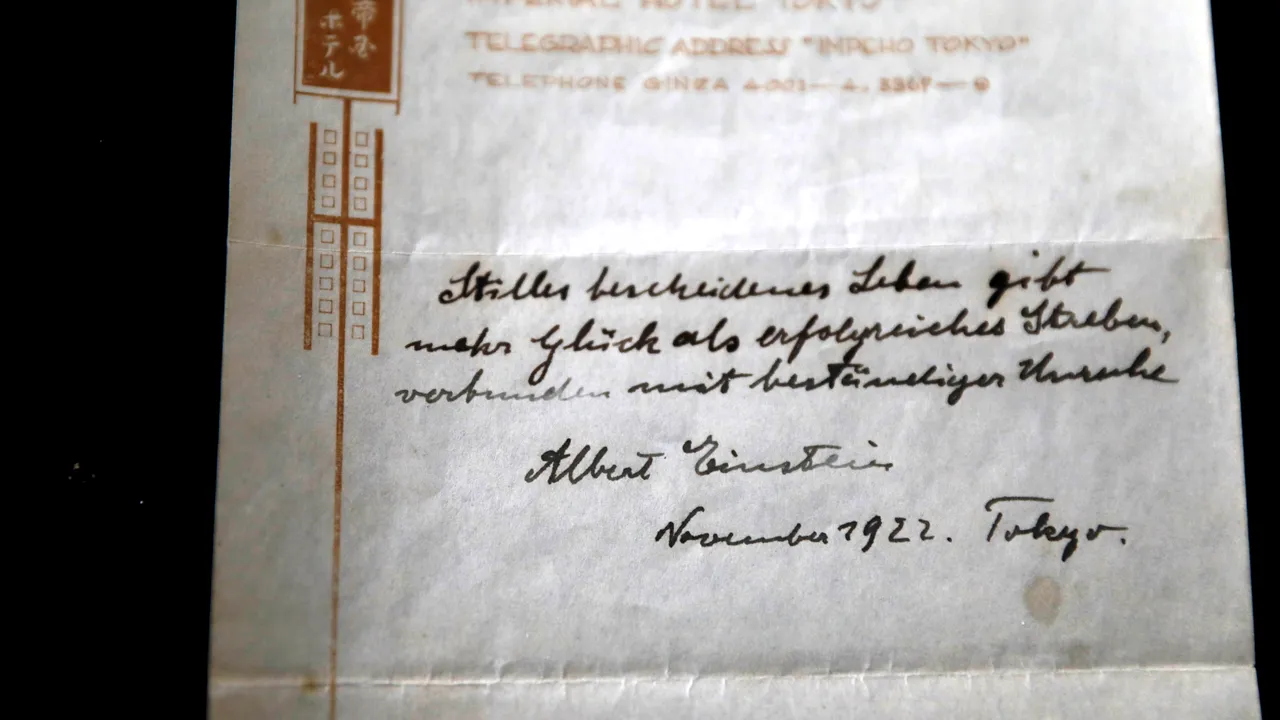 帝国
ホテル
IMPERIAL HOTEL TOKYO
TELEGRAPHIC ADDRESS "INPEHO TOKYO"
TELEPHONE GINZA
Stilles bescheidenes Leben gibt
mehr Glück als erfolgreiches Streben,
verbunden mit beständiger Unruhe
Albert Einstein
November 1922. Tokyo.